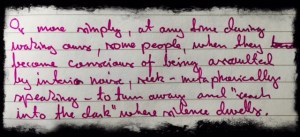 Or more simply, at any time during
waking ours, some people, when they
become conscious of being assaulted
by interior noise, seek - metaphorically
speaking - to turn away and "reach
into the dark" where silence dwells.